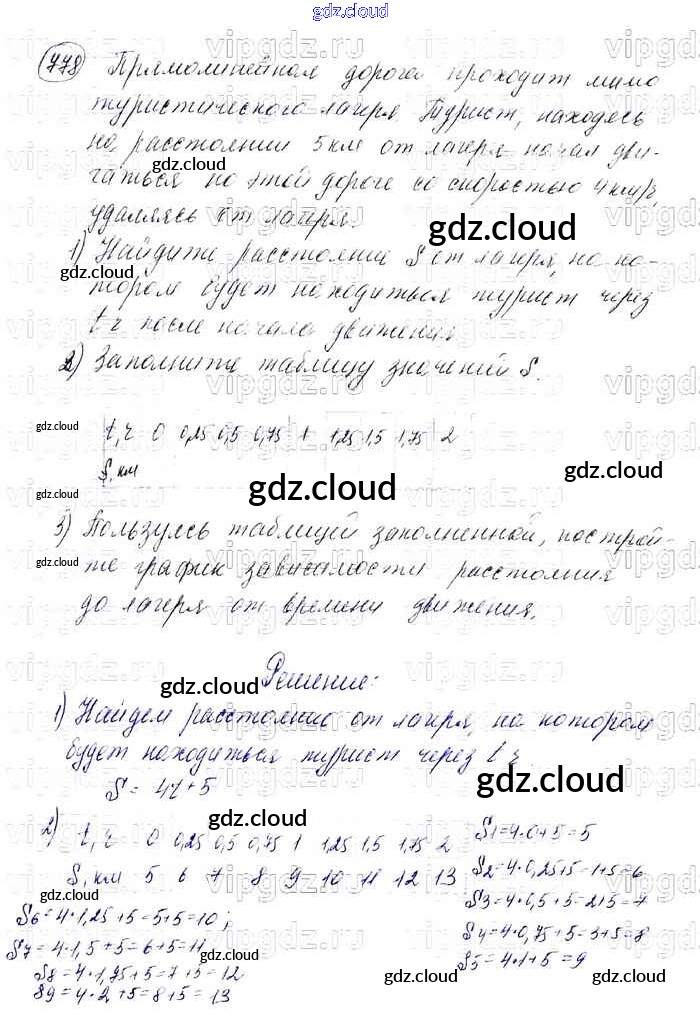 gdz.cloud
778 Прямолинейная дорога проходит мимо
туристического лагеря. Турист, находясь
на расстоянии 5 км от лагеря начал дви-
гаться по этой дороге со скоростью 4 км/ч,
удаляясь от лагеря.
1) Найдите расстояние S от лагеря, на ко-
тором будет находиться турист через
t ч после начала движения
2) Заполните таблицу значений S.
t, ч 0 0,25 0,5 0,75 1 1,25 1,5 1,75 2
S, км
3) Пользуясь таблицей заполненной, построй-
те график зависимости расстояния
до лагеря от времени движения.
Решение:
1) Найдем расстояние от лагеря, на котором
будет находиться турист через t ч.
S = 4t+5
2) t, ч 0 0,25 0,5 0,75 1 1,25 1,5 1,75 2
S, км 5 6 7 8 9 10 11 12 13
S1=4·0+5=5
S2=4·0,25+5=1+5=6
S3=4·0,5+5=2+5=7
S4=4·0,75+5=3+5=8
S5=4·1+5=9
S6=4·1,25+5=5+5=10;
S7=4·1,5+5=6+5=11
S8=4·1,75+5=7+5=12
S9=4·2+5=8+5=13